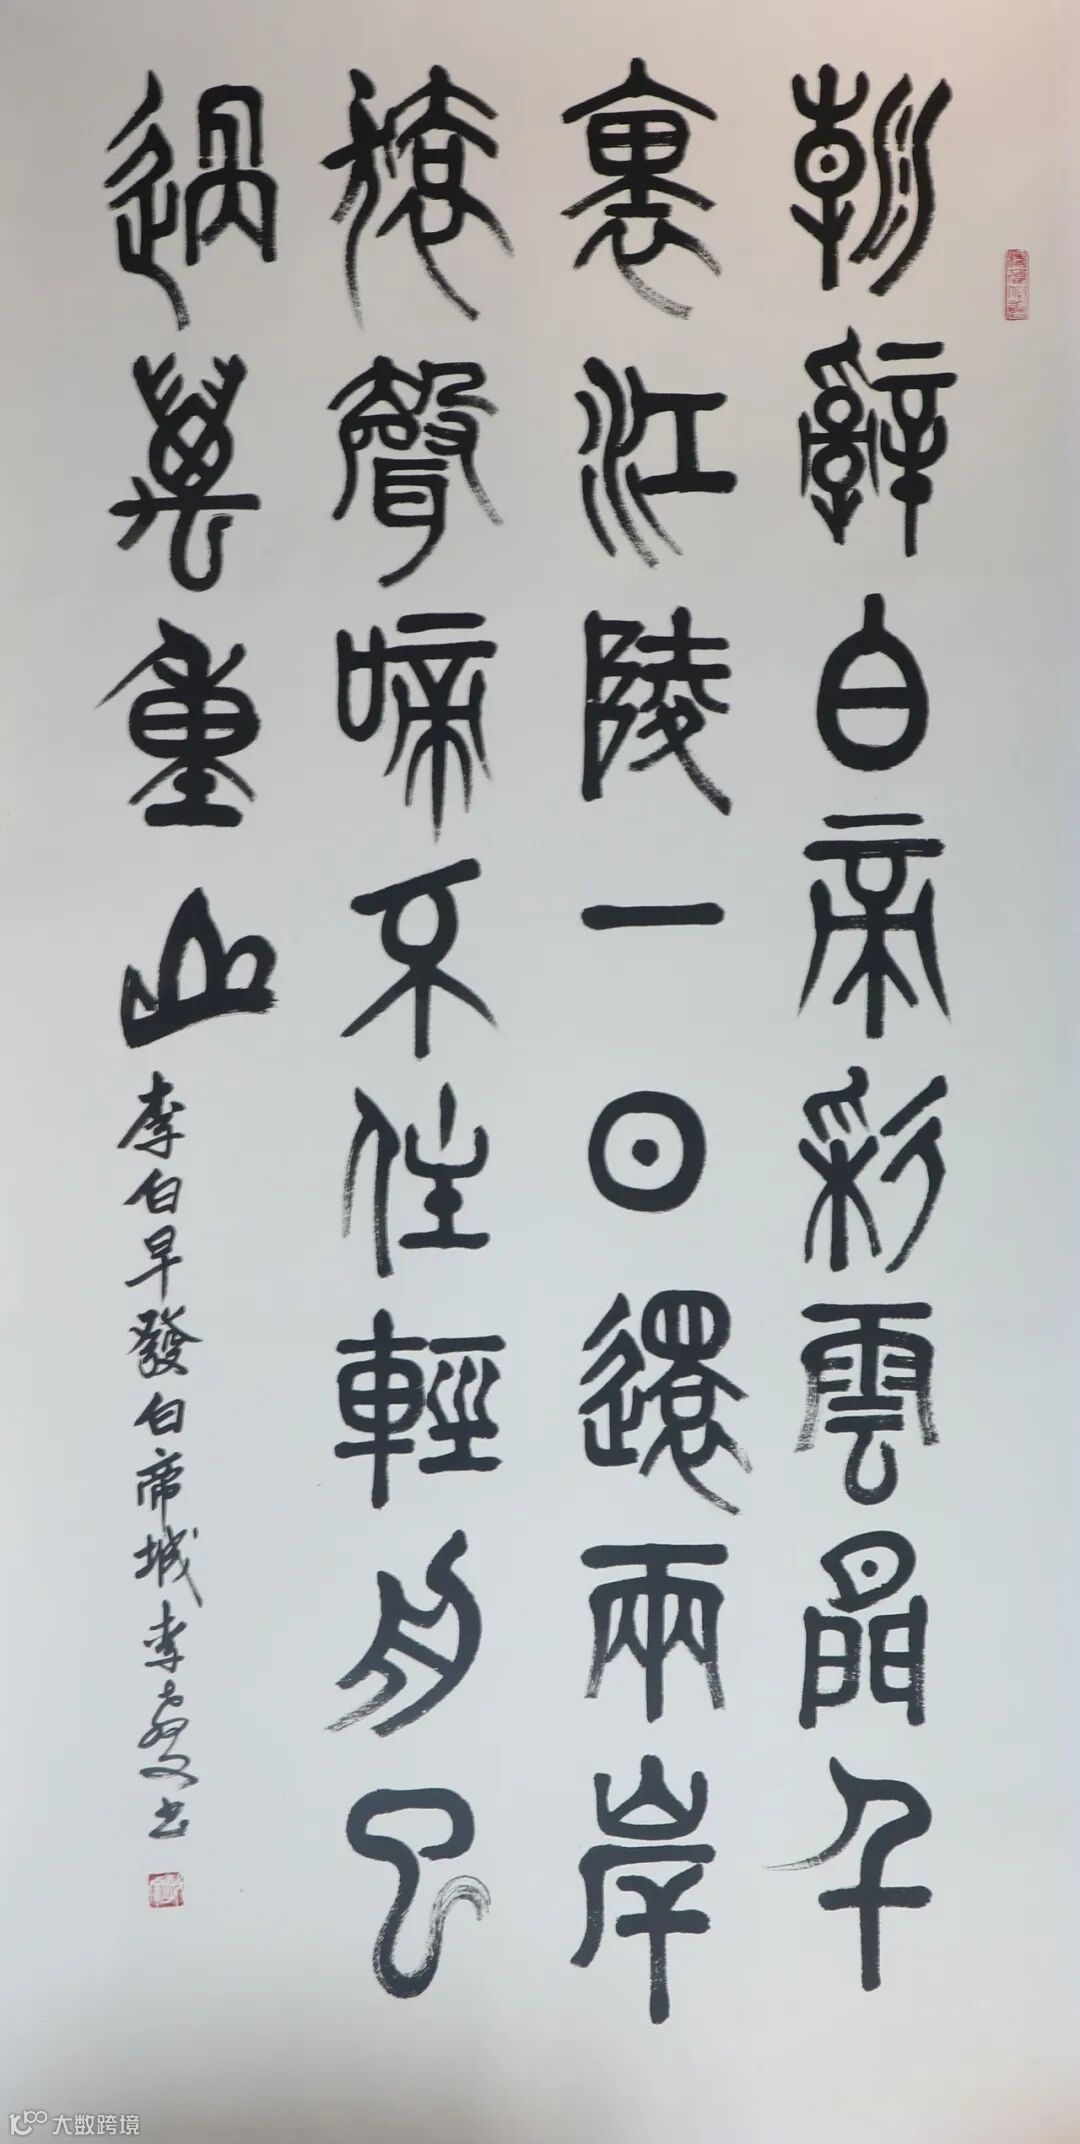 朝辭白帝彩雲間千
裏江陵一日還兩岸
猿聲啼不住輕舟已
過萬重山
李白早發白帝城李书
大数跨境